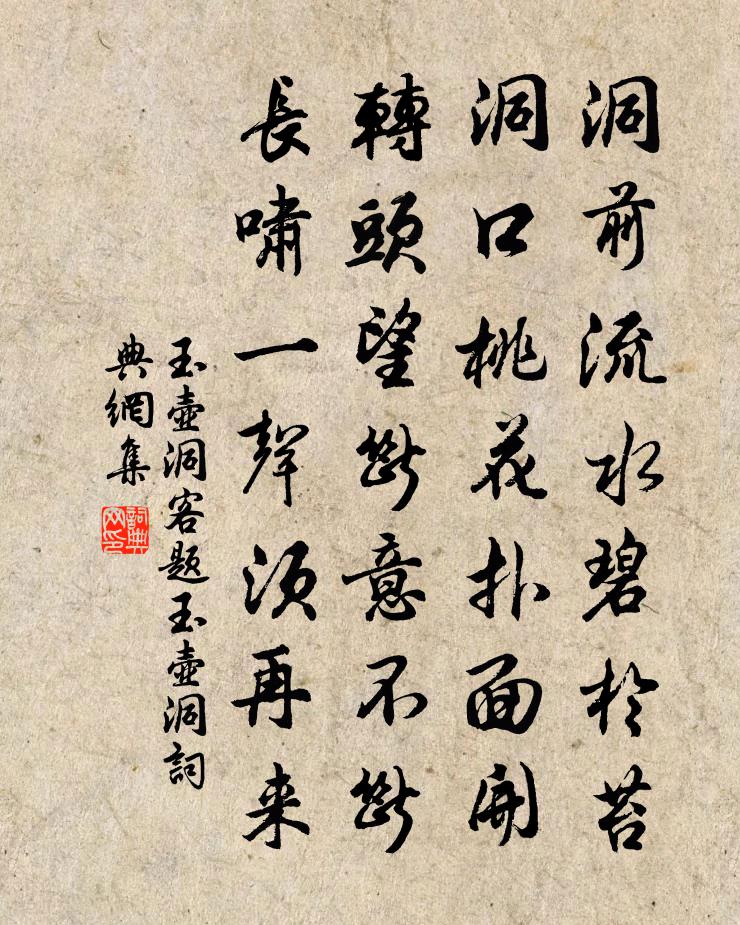 洞前流水碧於苔
洞口桃花扑面開
轉頭望斷意不斷
長嘯一聲須再来
玉壺洞客题玉壺洞詞
典網集
詞典
网印